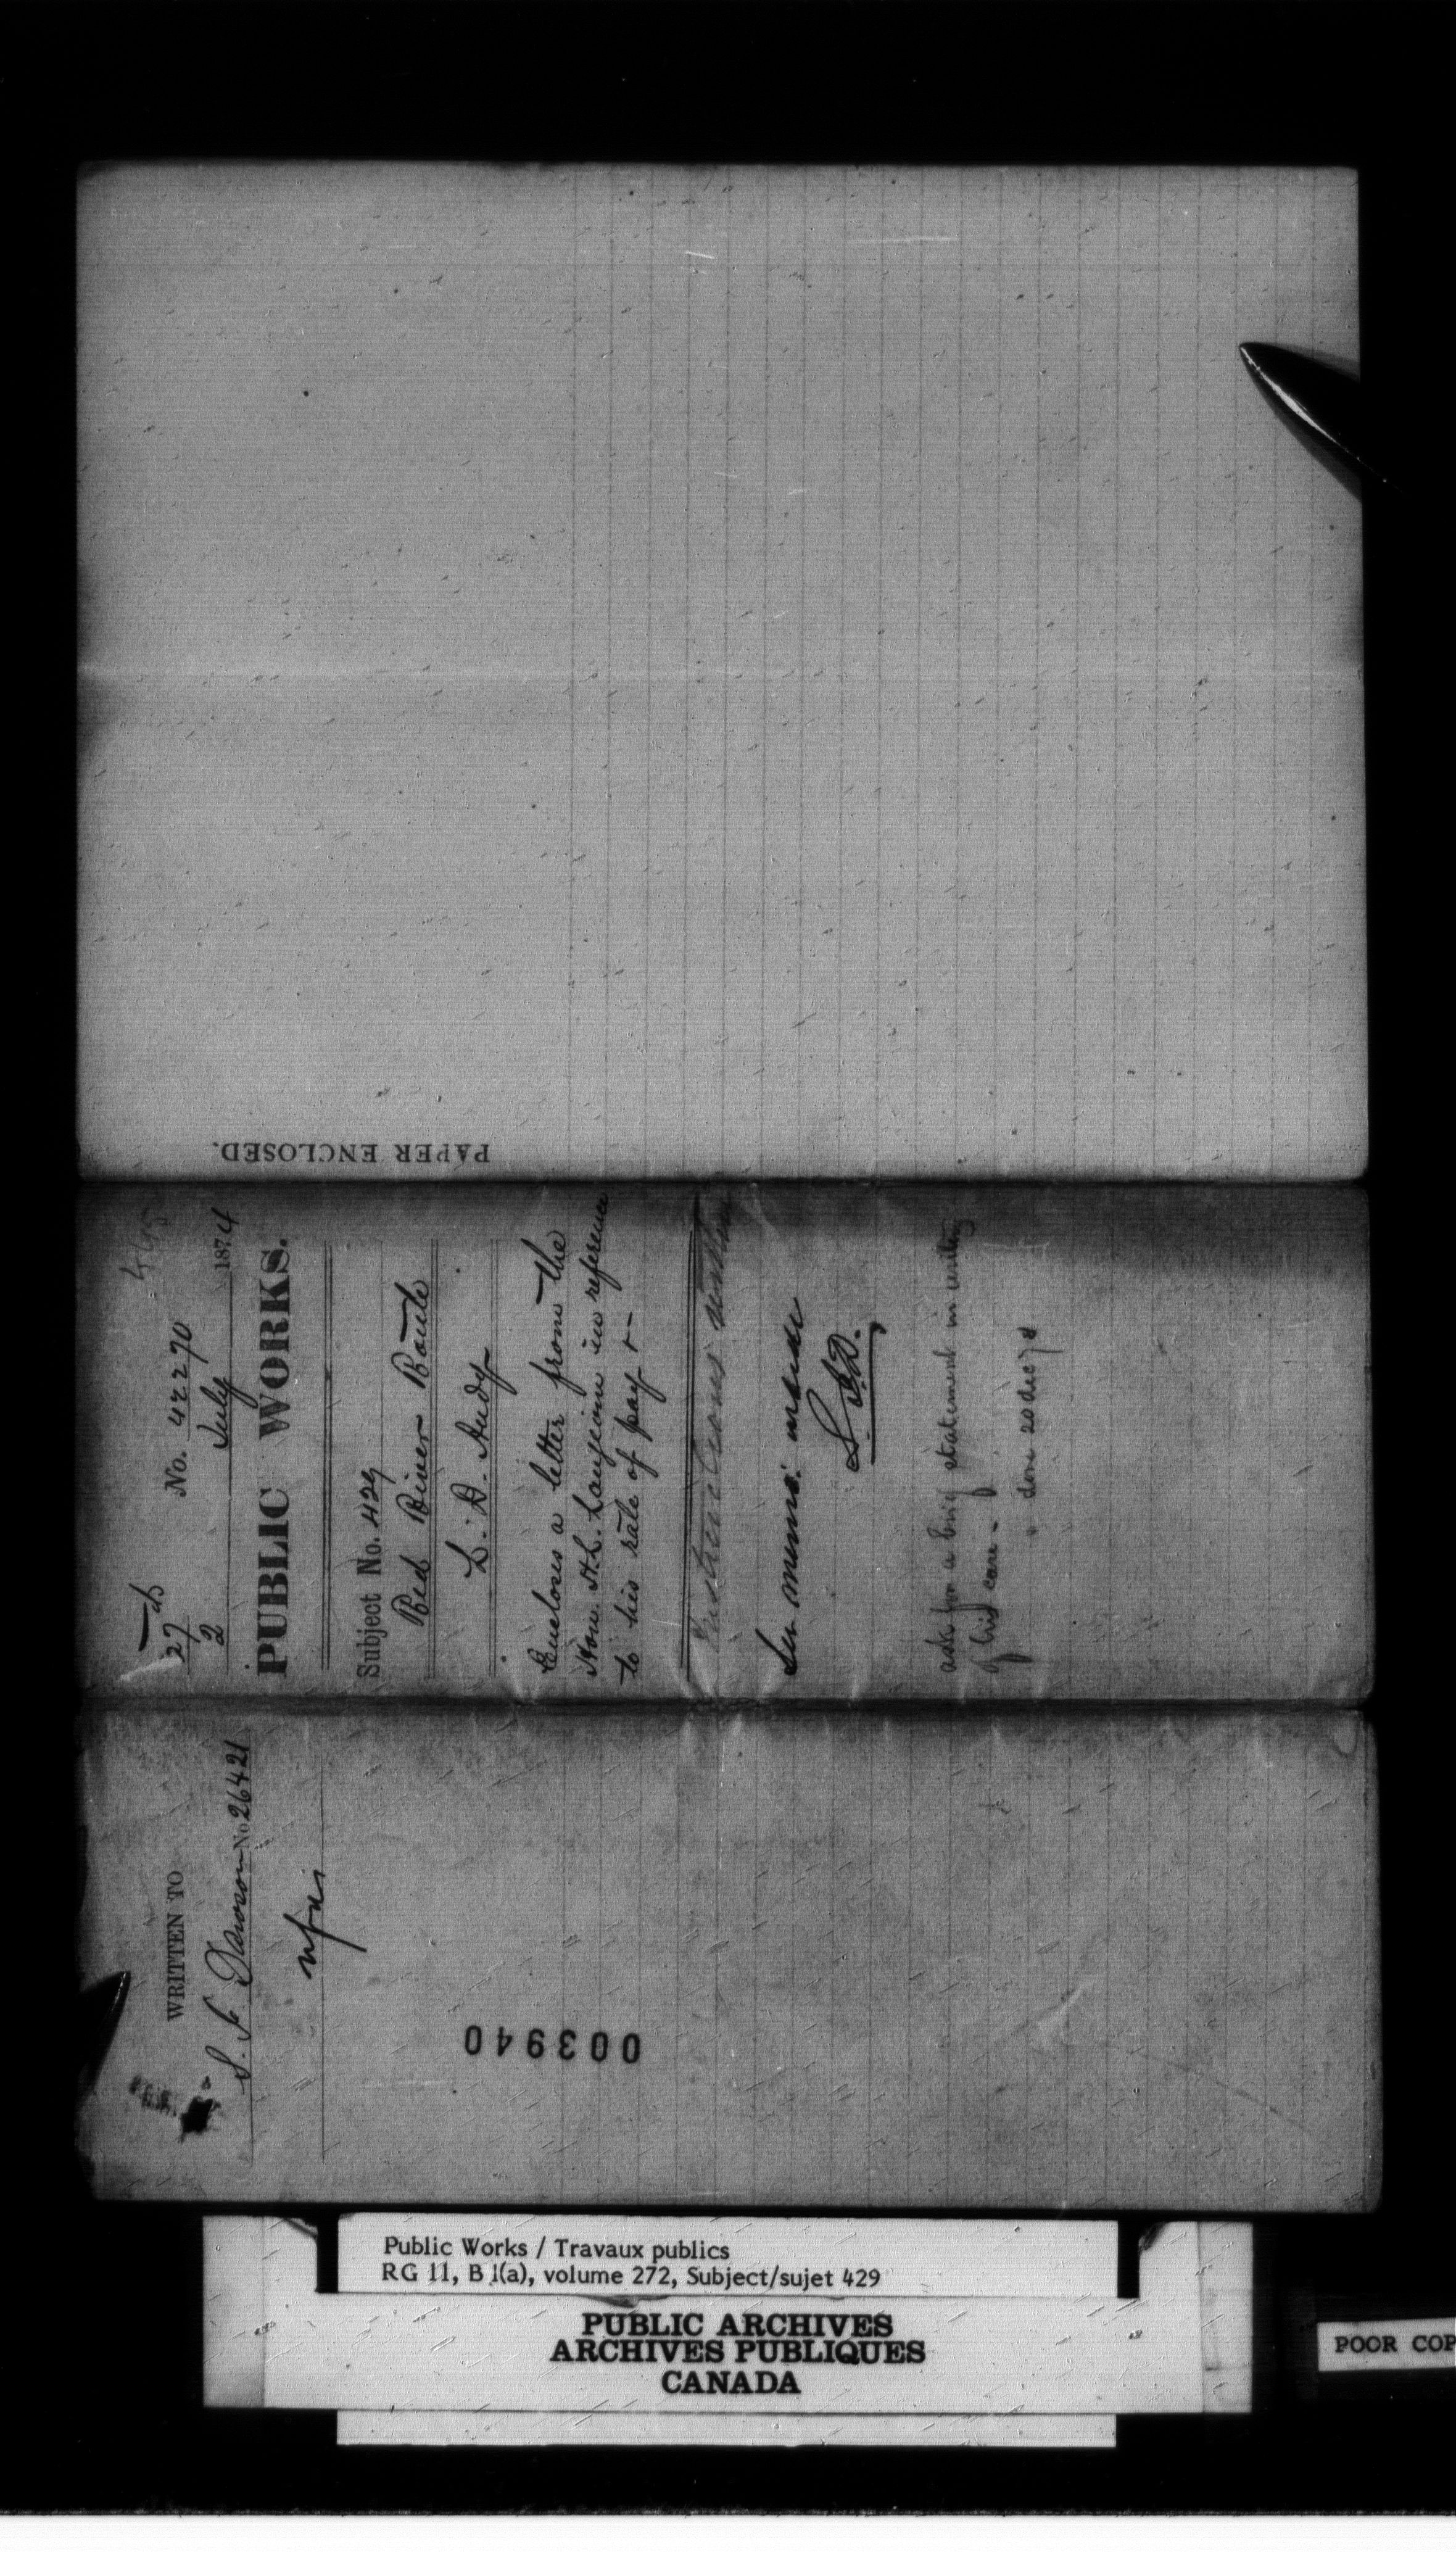 PAPER ENCLOSED.
445
27 No. 42270
2 July 1874
PUBLIC WORKS.
Subject No. 429
Red River Route
L. D. Audy
Encloses a letter from the
Hon. H. L. Langevin in reference
to his rate of pay +-
See memo. inside
ask for a brief statement in writing
of his case -
done 20 dec 74
WRITTEN TO
S. J. Dawson No. 26421
003940
Public Works / Travaux publics
RG 11, B 1(a), volume 272, Subject/sujet 429
PUBLIC ARCHIVES
ARCHIVES PUBLIQUES
CANADA
POOR COP